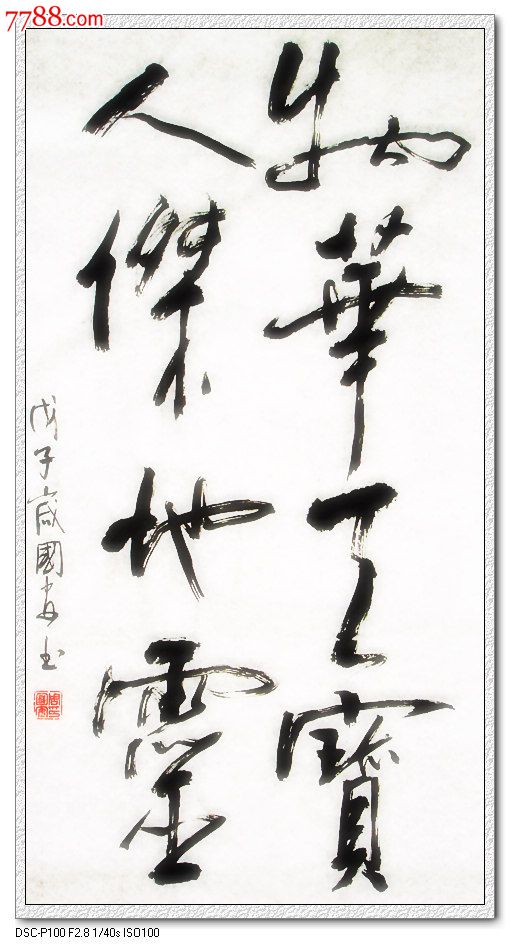 7788.com
物華天寶
人傑地靈
戊子歲國安书
DSC-P100 F2.8 1/40s ISO100